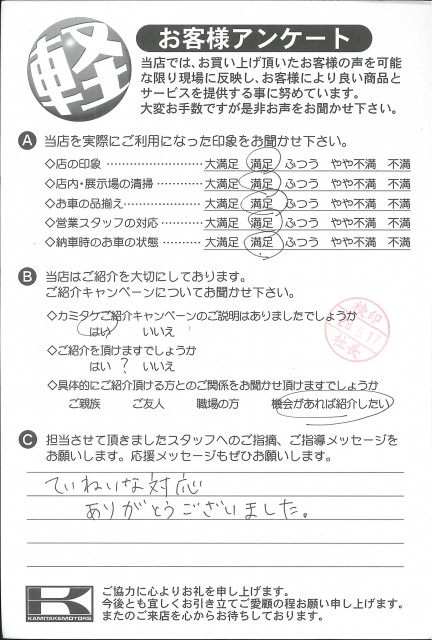 軽
お客様アンケート
当店では、お買い上げ頂いたお客様の声を可能
な限り現場に反映し、お客様により良い商品と
サービスを提供する事に努めています。
大変お手数ですが是非お声をお聞かせ下さい。
A 当店を実際にご利用になった印象をお聞かせ下さい。
◇店の印象 ………………… 大満足 満足 ふつう やや不満 不満
◇店内・展示場の清掃 ………… 大満足 満足 ふつう やや不満 不満
◇お車の品揃え ……………… 大満足 満足 ふつう やや不満 不満
◇営業スタッフの対応 ………… 大満足 満足 ふつう やや不満 不満
◇納車時のお車の状態 ………… 大満足 満足 ふつう やや不満 不満
B 当店はご紹介を大切にしております。
ご紹介キャンペーンについてお聞かせ下さい。
◇カミタケご紹介キャンペーンのご説明はありましたでしょうか
はい いいえ
◇ご紹介を頂けますでしょうか
はい ? いいえ
◇具体的にご紹介頂ける方とのご関係をお聞かせ頂けますでしょうか
ご親族 ご友人 職場の方 機会があれば紹介したい
検印
社長
C 担当させて頂きましたスタッフへのご指摘、ご指導メッセージを
お願いします。応援メッセージもぜひお願いします。
ていねいな対応
ありがとうございました。
K
KAMITAKEMOTORS
ご協力に心よりお礼を申し上げます。
今後とも宜しくお引き立てご愛顧の程お願い申し上げます。
またのご来店を心からお待ちしております。